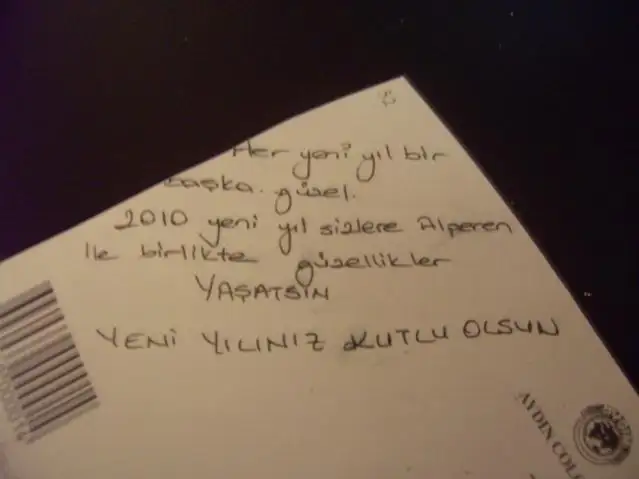 Her yeni yıl bir
başka. güzel.
2010 yeni yıl sizlere Alperen
ile birlikte güzellikler
YAŞATSIN
YENİ YILINIZ KUTLU OLSUN
AYDIN COL